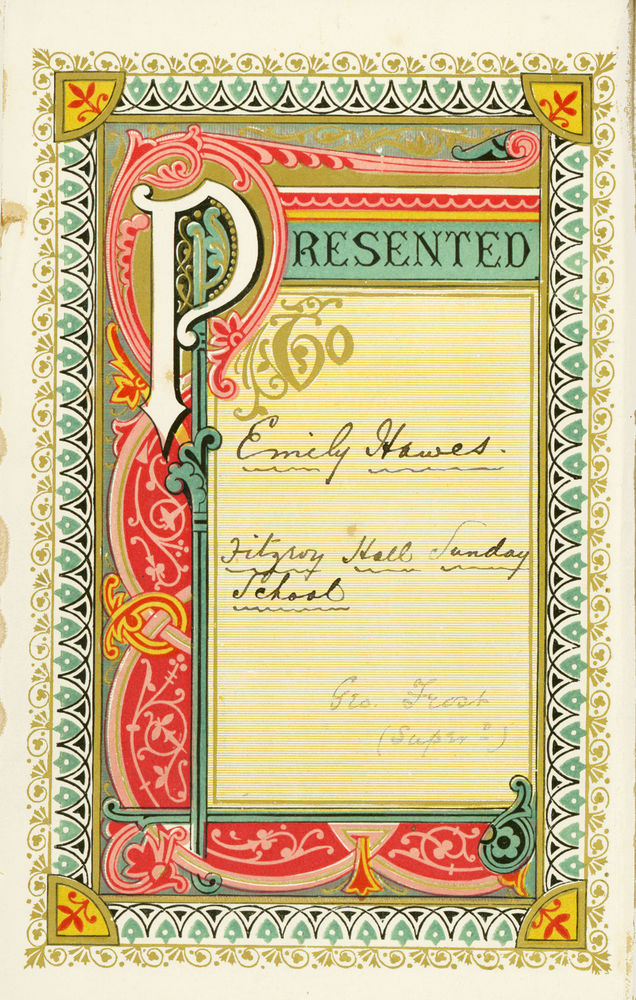 PRESENTED
To
Emily Hawes.
Fitzroy Hall Sunday
School
Geo. Frost
(Super^t)